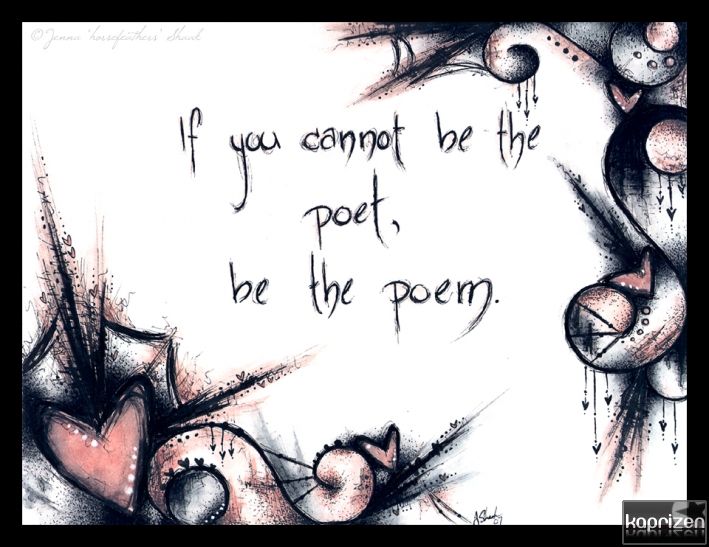 © Jenna 'horsefeathers' Shaak
If you cannot be the
poet,
be the poem.
kaprizen